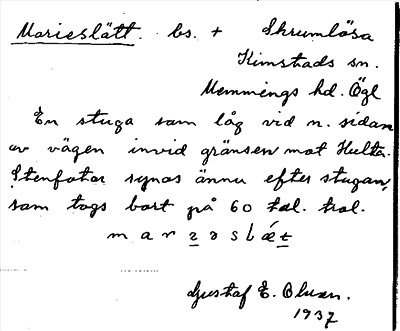 Marieslätt. bs. + Skrumlösa
Kimstads sn.
Memmings hd. Ögl
En stuga som låg vid n. sidan
av vägen invid gränsen mot Hulta.
Stenfoten synas ännu efter stugan,
som togs bort på 60 tal. trol.
Gustaf E. Olsson.
1937